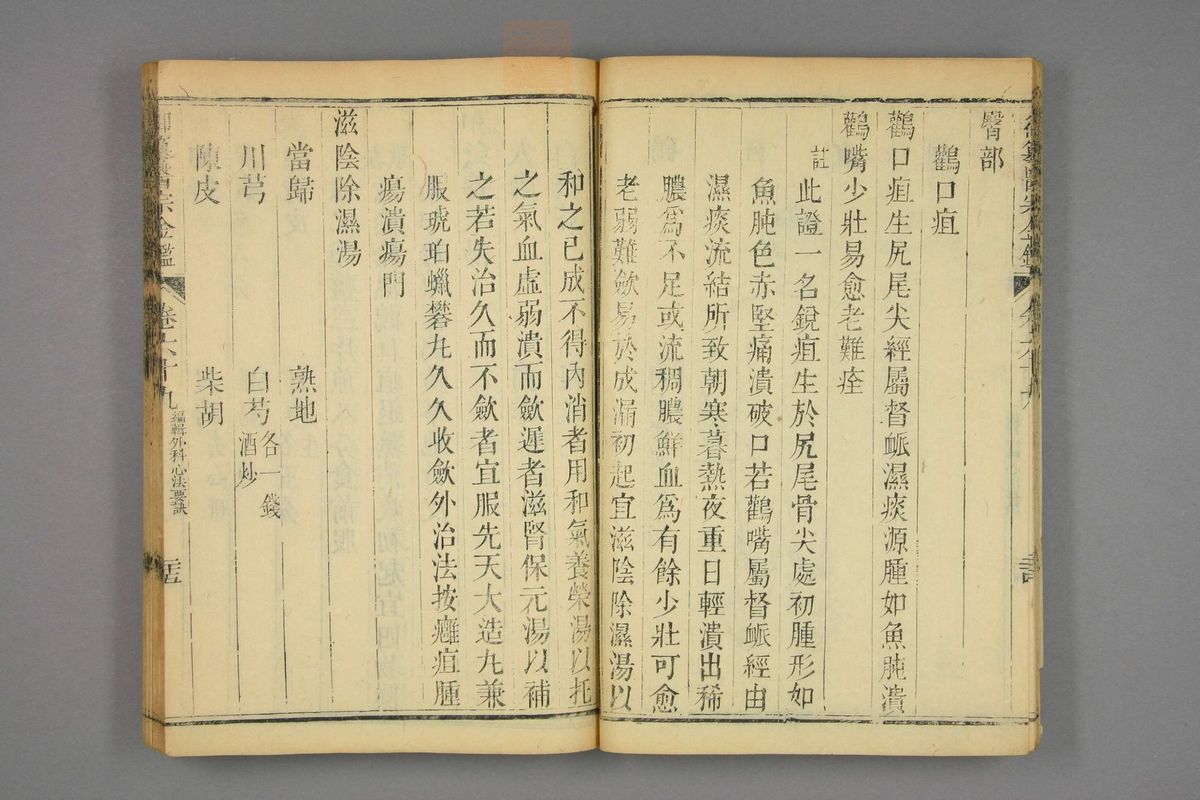 臀部
鸛口疽
鸛口疽生尻尾尖經屬督脈濕痰源腫如魚肫潰
鸛嘴少壯易愈老難痊
註此證一名銳疽生於尻尾骨尖處初腫形如
魚肫色赤堅痛潰破口若鸛嘴屬督脈經由
濕痰流結所致朝寒暮熱夜重日輕潰出稀
膿爲不足或流稠膿鮮血爲有餘少壯可愈
老弱難斂易於成漏初起宜滋陰除濕湯以
和之已成不得內消者用和氣養榮湯以托
之氣血虛弱潰而斂遲者滋腎保元湯以補
之若失治久而不斂者宜服先天大造九兼
服琥珀蠟礬九久久收斂外治法按癰疽腫
瘍潰瘍門
滋陰除濕湯
當歸 熟地
川芎 白芍各一錢酒炒
陳皮 柴胡
醫宗金鑑 卷六十九 編輯外科心法要訣